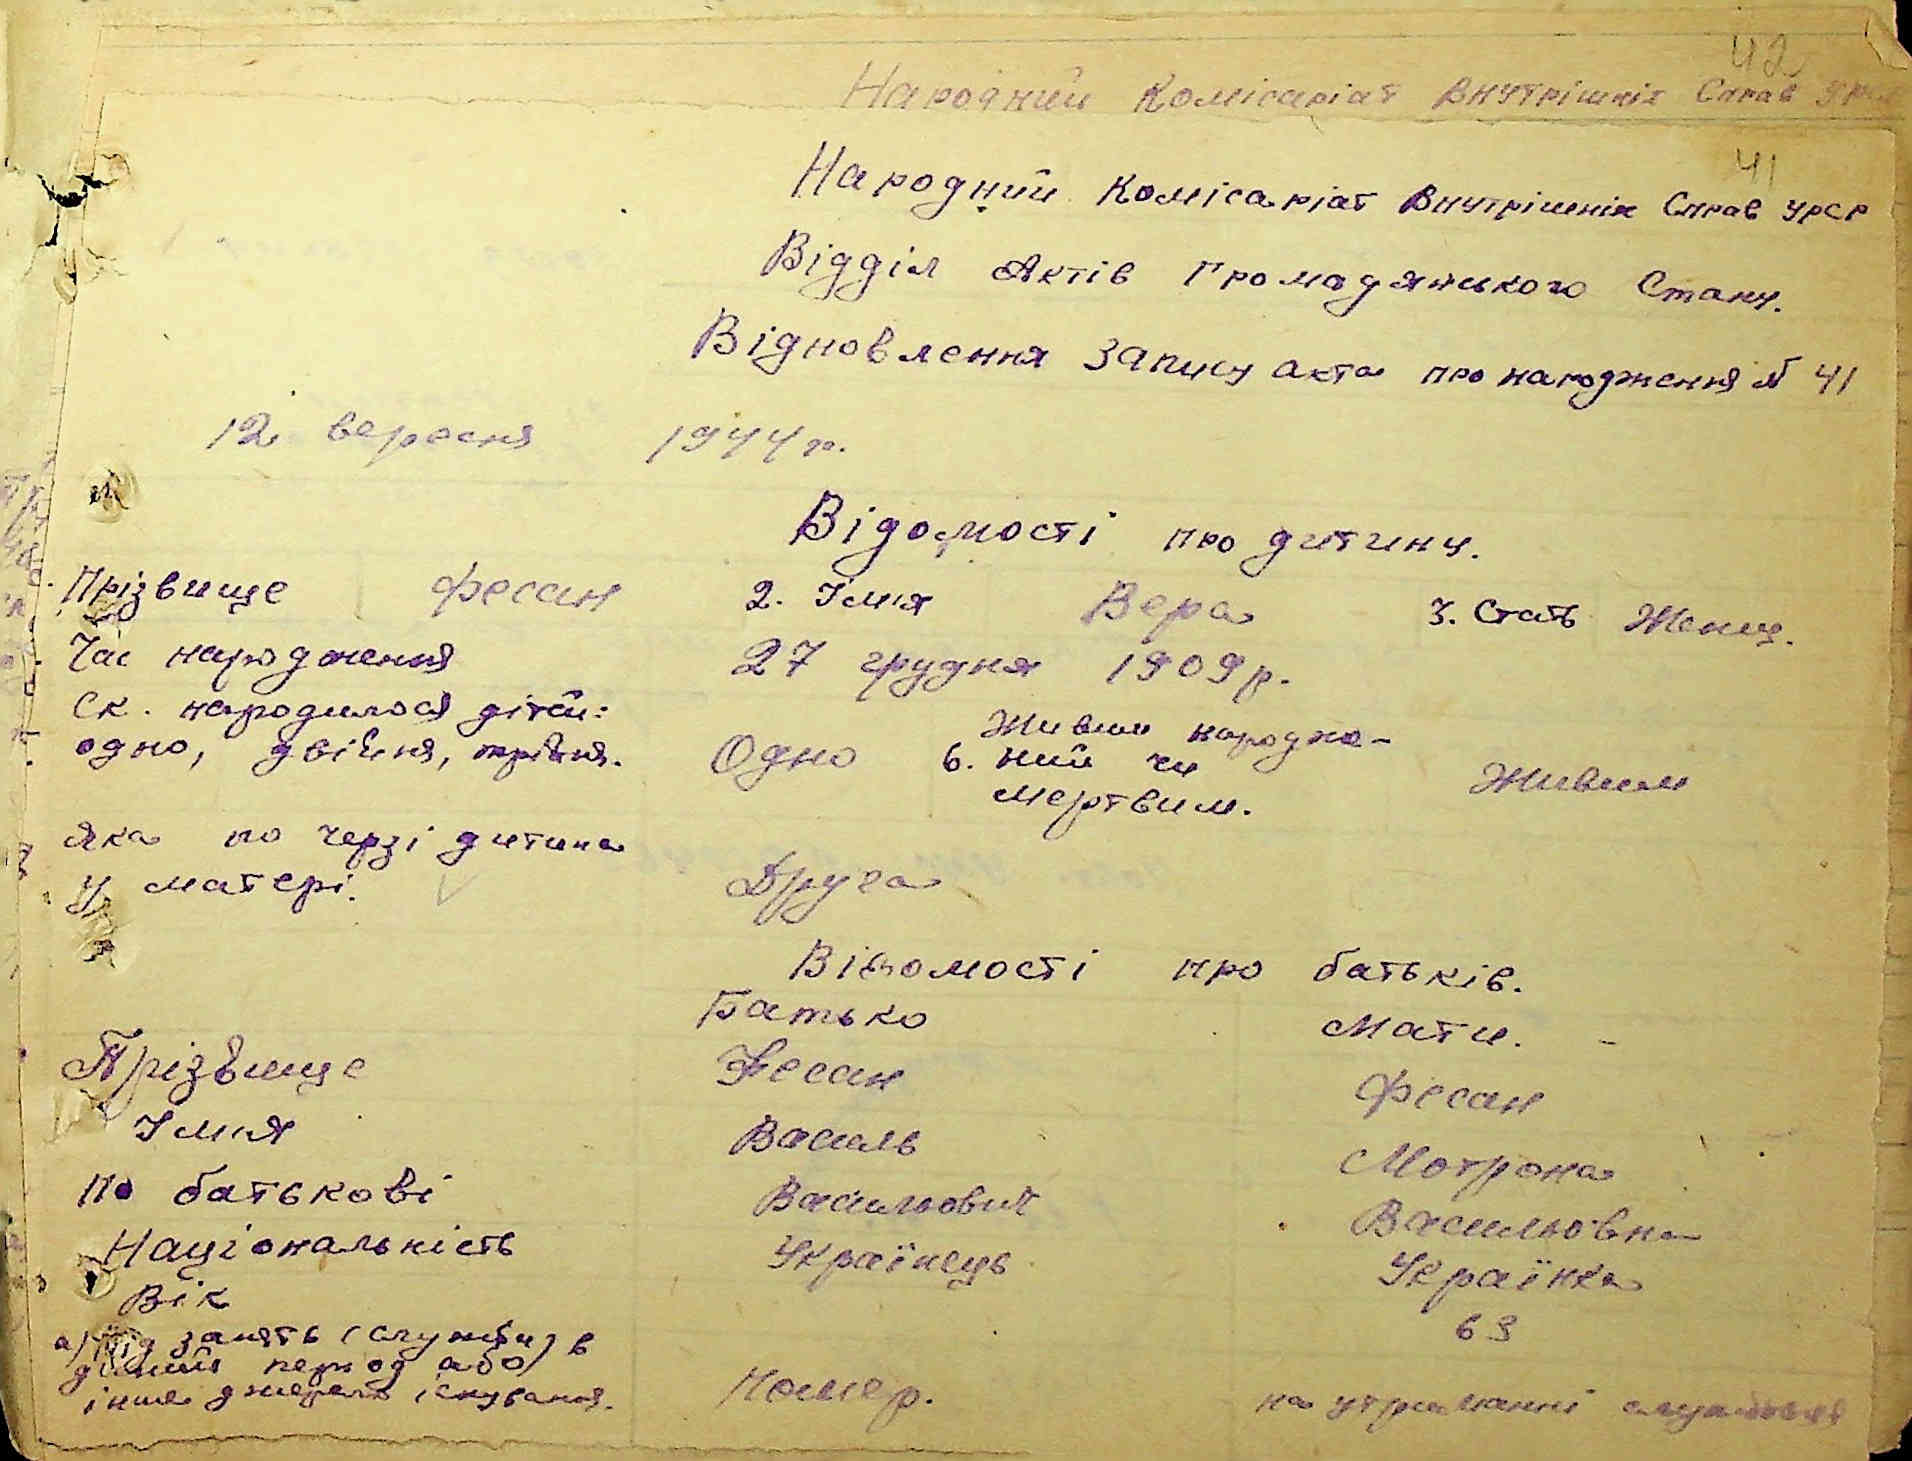 42
Народний Комісаріат Внутрішніх Справ
41
Народний Комісаріат Внутрішніх Справ УРСР
Відділ Актів Громадянського Стану.
Відновлення запису акта про народження № 41
12 вересня 1944 р.
Відомості про дитину.
Прізвище Фесан 2. Ім'я Вера 3. Стать Женщ.
Час народження 27 грудня 1909 р.
Ск. народилося дітей: Живим народже-
одно, двійня, трійня. Одно 6. ний чи Живим
мертвим.
Яка по черзі дитина
у матері. Друга
Відомості про батьків.
Батько Мати.
Прізвище Фесан Фесан
Ім'я Василь Мотрона
По батькові Васильович Васильовна
Національність Українець Українка
Вік 63
а) Рід занять (служби) в
даний період або
інше джерело існування. Помер. на утриманні